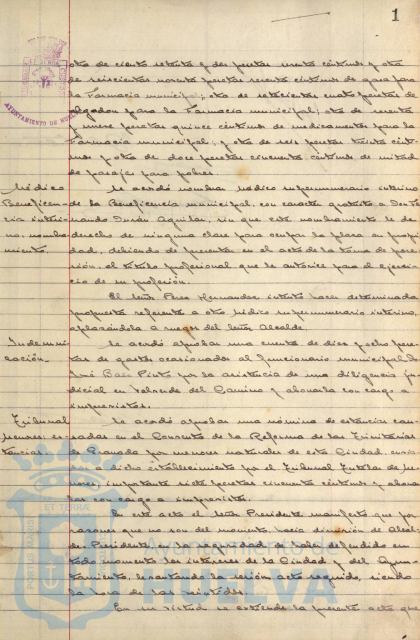 1
otra de ciento setenta y dos pesetas cincuenta céntimos y otra
de seiscientas noventa pesetas sesenta céntimos de gasa para
la Farmacia municipal; otra de setecientas cuatro pesetas de
algodón para la Farmacia municipal; otra de sesenta
y nueve pesetas quince céntimos de medicamentos para la
Farmacia municipal; y otra de seis pesetas treinta cénti-
mos y otra de doce pesetas cincuenta céntimos de mitad
de pasajes para pobres.
Médico Se acordó nombrar médico supernumerario interino
Beneficen- de la Beneficencia municipal, con carácter gratuito a Don Fer-
cia interi- nando Jurado Aguilar, sin que este nombramiento le dé
no. nombra- derecho de ninguna clase para ocupar la plaza en propie-
miento. dad, debiendo de presentar en el acto de la toma de pose-
sión, el título profesional que le autorice para el ejerci-
cio de su profesión.
El Señor Pérez Hernández intentó hacer determinada
propuesta referente a otro médico supernumerario interino,
aplazándola a ruegos del Señor Alcalde.
Indemni- Se acordó aprobar una cuenta de diez y ocho pese-
zación. tas de gastos ocasionados al funcionario municipal D.
José Baez Pinto por la asistencia de una diligencia ju-
dicial en Valverde del Camino y abonarla con cargo a
imprevistos.
Tribunal Se acordó aprobar una nómina de estancias cau-
menores. es- sadas en el Convento de la Reforma de las Trinitarias
tancias. de Granada por menores naturales de esta Ciudad, envia-
das a dicho establecimiento por el Tribunal Tutelar de Me-
nores, importante siete pesetas cincuenta céntimos y abonar-
las con cargo a imprevistos.
En este acto el Señor Presidente manifestó que por
razones que no son del momento, hacía dimisión de Alcal-
de-Presidente en la seguridad de haber defendido en
todo momento los intereses de la Ciudad y del Ayun-
tamiento, levantando la sesión acto seguido, siendo
la hora de las veintidós.
En su virtud se extiende la presente acta que
AYUNTAMIENTO DE HUELVA
PORTUS MARIS ET TERRAE CUSTODIA
Ayuntamiento de
HUELVA